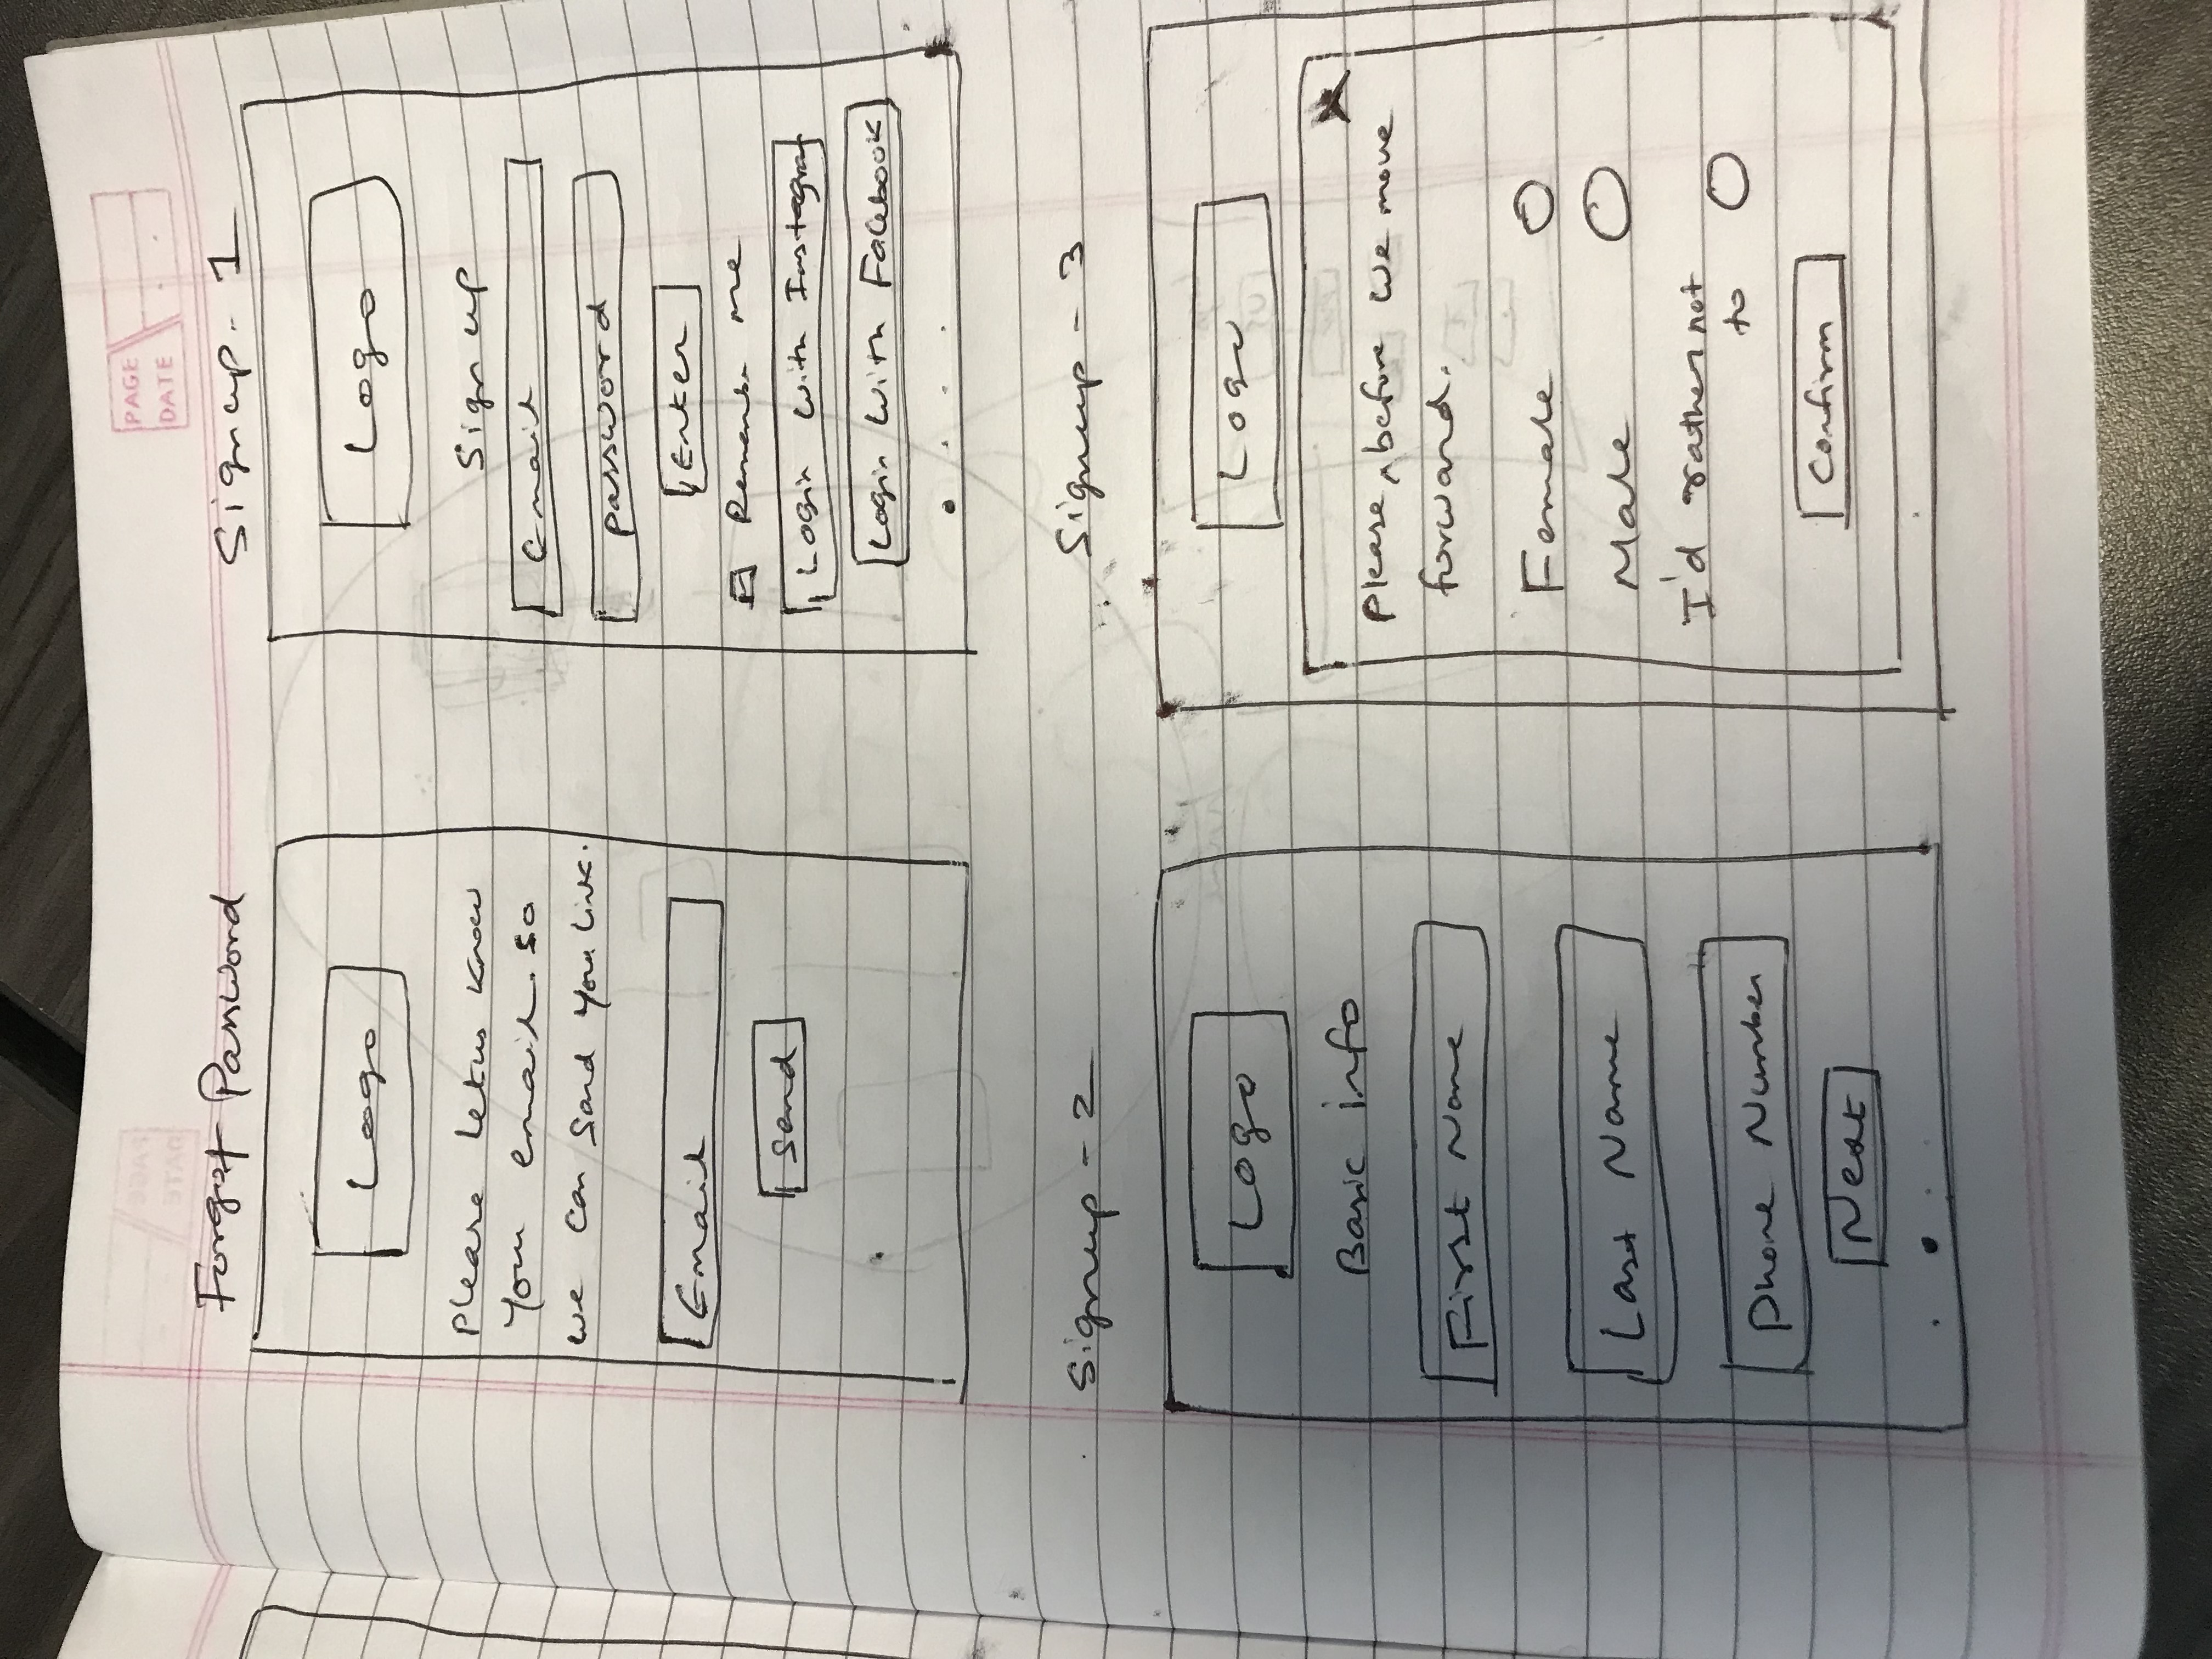 PAGE
DATE
Forgot Password
Logo
Please let us know
your email. so
we can send you link.
Email
Send
Signup - 1
Logo
Sign up
Email
password
Enter
Remember me
Login with Instagram
Login with Facebook
Signup - 2
Logo
Basic info
First Name
Last Name
Phone Number
Next
Signup - 3
Logo
X
Please, before we move
forward.
Female
Male
I'd rather not
to
Confirm